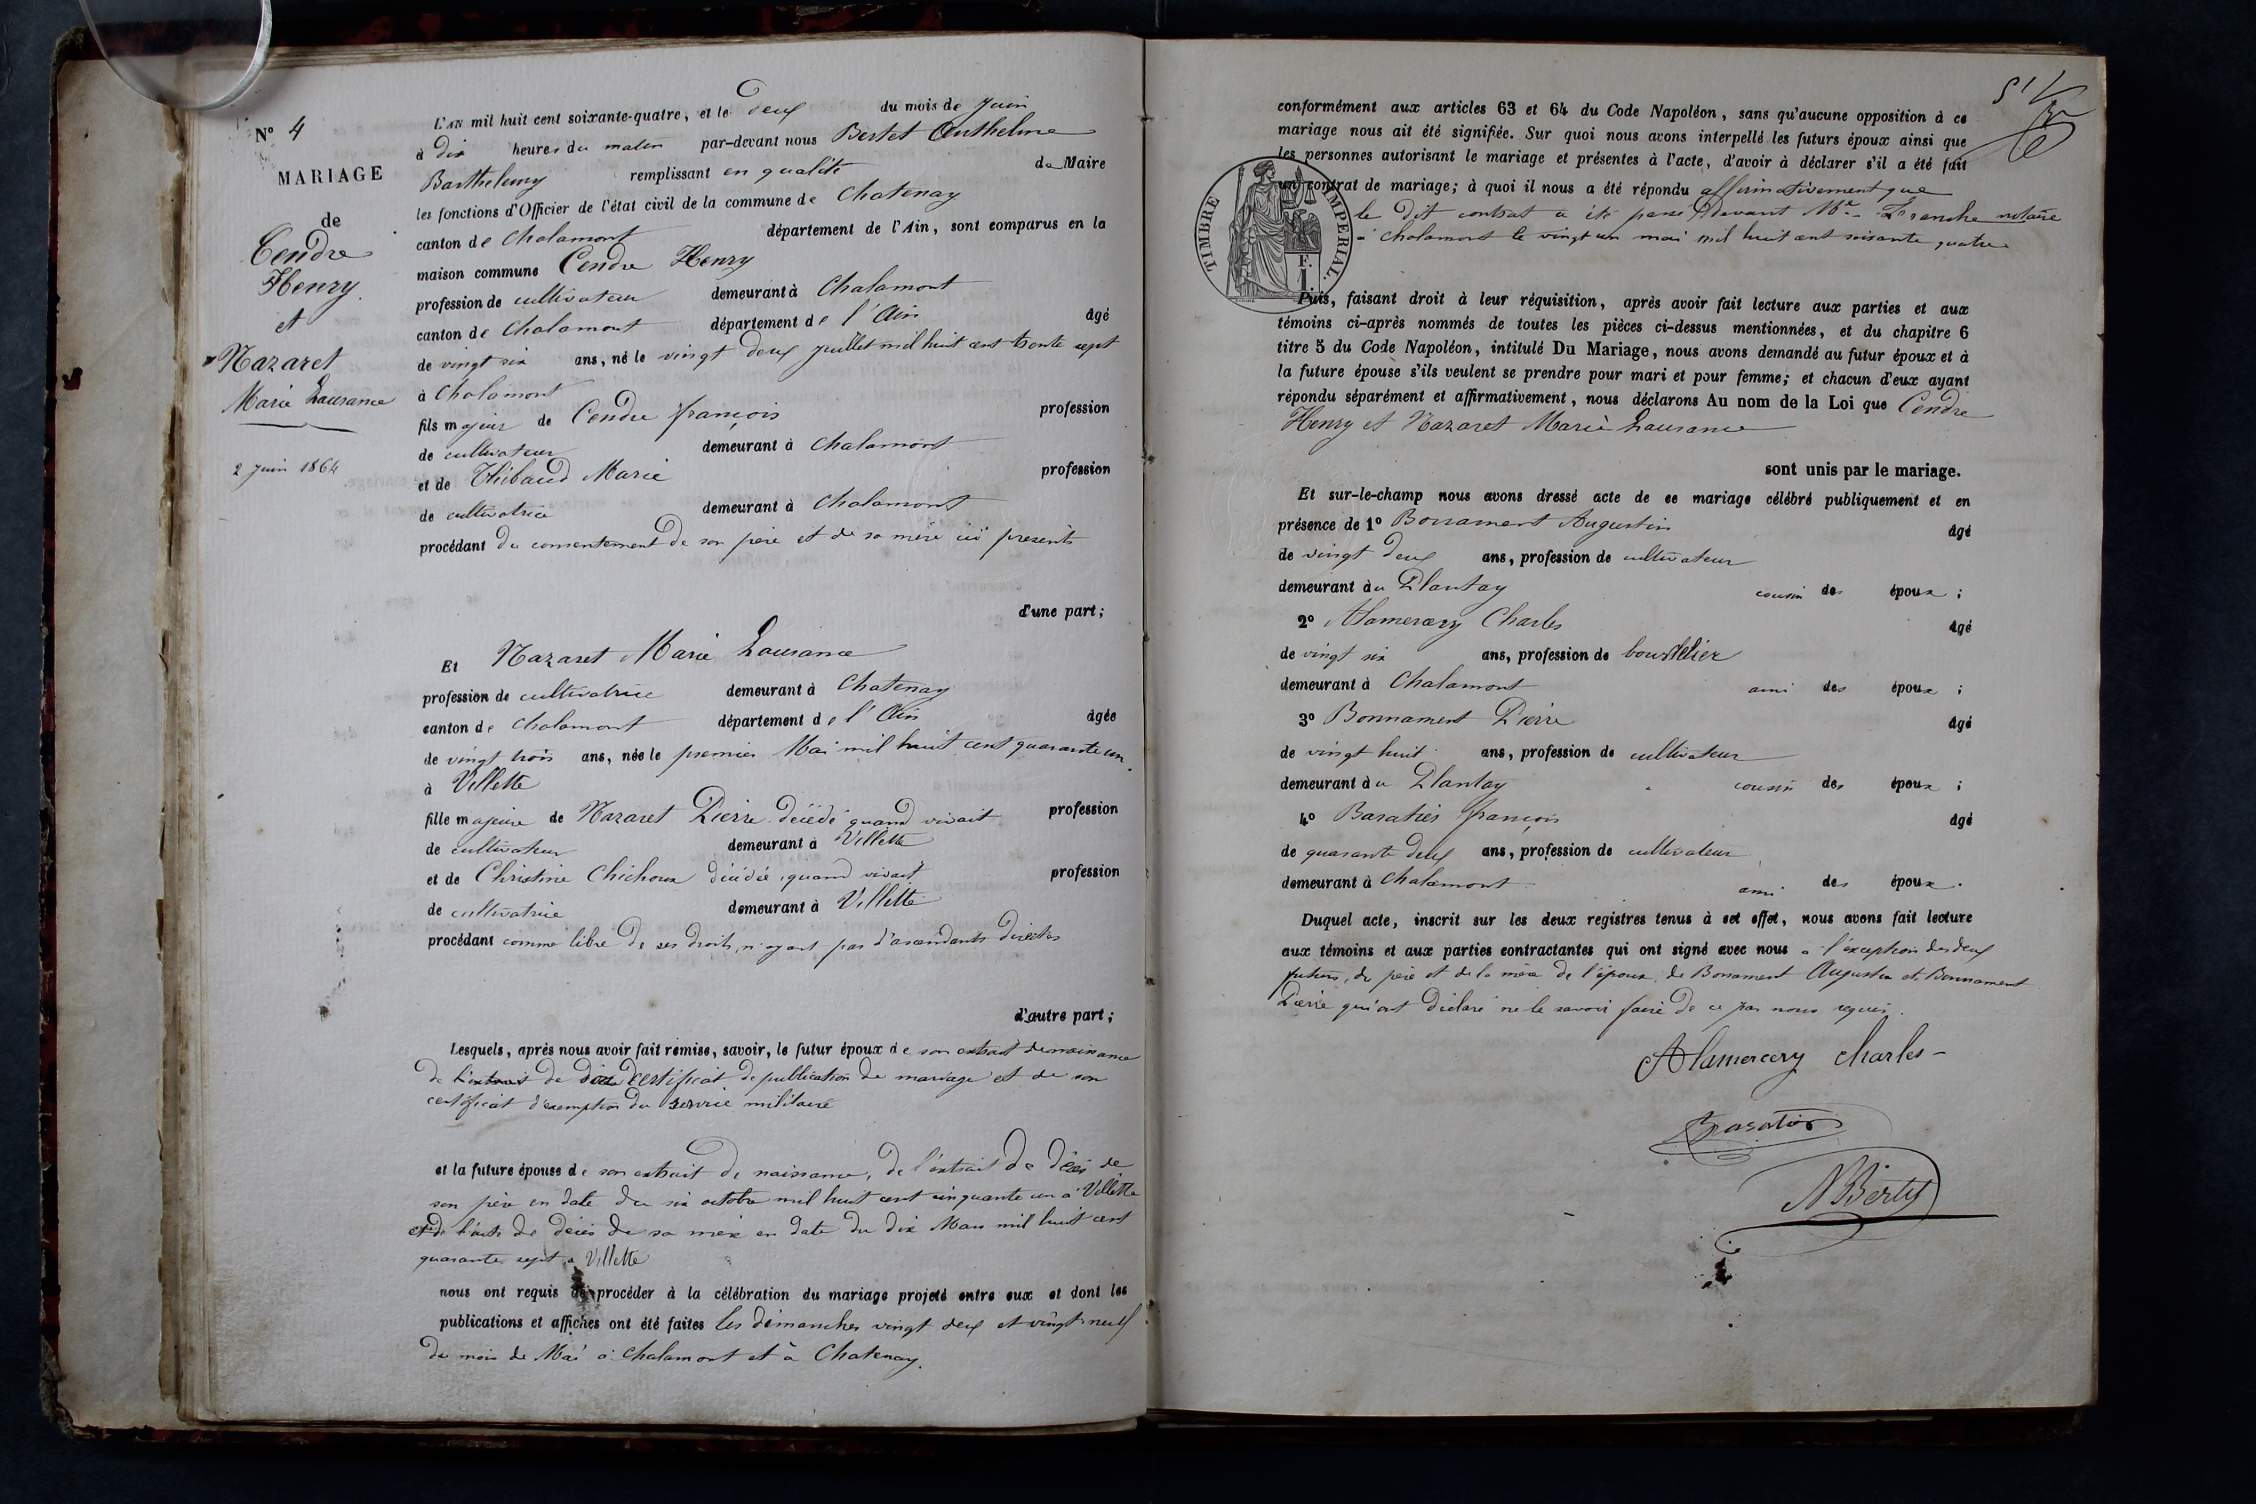 N° 4
MARIAGE
de
Cendre
Henry
et
Nazaret
Marie Laurance
2 juin 1864
L'AN mil huit cent soixante-quatre, et le deux du mois de juin
à dix heures du matin par-devant nous Bertet Anthelme
Barthelemy remplissant en qualité de Maire
les fonctions d'Officier de l'état civil de la commune de Chatenay
canton de Chalamont département de l'Ain, sont comparus en la
maison commune Cendre Henry
profession de cultivateur demeurant à Chalamont
canton de Chalamont département de l'Ain âgé
de vingt six ans, né le vingt deux juillet mil huit cent trente sept
à Chalamont
fils majeur de Cendre françois profession
de cultivateur demeurant à Chalamont
et de Thibaud Marie profession
de cultivatrice demeurant à Chalamont
procédant du consentement de son père et de sa mère ici présents
d'une part;
Et Nazaret Marie Laurance
profession de cultivatrice demeurant à Chatenay
canton de Chalamont département de l'Ain âgée
de vingt trois ans, née le premier Mai mil huit cent quarante un
à Villette
fille majeure de Nazaret Pierre décédé quand vivait profession
de cultivateur demeurant à Villette
et de Christine Chichoux décédée, quand vivait profession
de cultivatrice demeurant à Villette
procédant comme libre de ses droits, n'ayant pas d'ascendants directes
d'autre part;
Lesquels, après nous avoir fait remise, savoir, le futur époux de son extrait de naissance
de l'extrait de certificat de publication de mariage et de son
certificat d'exemption du service militaire
et la future épouse de son extrait de naissance, de l'extrait de décès de
son père en date du six octobre mil huit cent cinquante un à Villette
et de l'acte de décès de sa mère en date du dix Mars mil huit cent
quarante sept à Villette
nous ont requis de procéder à la célébration du mariage projeté entre eux et dont les
publications et affiches ont été faites les dimanches vingt deux et vingt neuf
du mois de Mai à Chalamont et à Chatenay.
conformément aux articles 63 et 64 du Code Napoléon, sans qu'aucune opposition à ce
mariage nous ait été signifiée. Sur quoi nous avons interpellé les futurs époux ainsi que
les personnes autorisant le mariage et présentes à l'acte, d'avoir à déclarer s'il a été fait
un contrat de mariage; à quoi il nous a été répondu affirmativement que
le dit contrat a été passé devant Me notaire
à Chalamont le vingt un mai mil huit cent soixante quatre
TIMBRE IMPERIAL.
F.
1.
Puis, faisant droit à leur réquisition, après avoir fait lecture aux parties et aux
témoins ci-après nommés de toutes les pièces ci-dessus mentionnées, et du chapitre 6
titre 5 du Code Napoléon, intitulé Du Mariage, nous avons demandé au futur époux et à
la future épouse s'ils veulent se prendre pour mari et pour femme; et chacun d'eux ayant
répondu séparément et affirmativement, nous déclarons Au nom de la Loi que Cendre
Henry et Nazaret Marie Laurance
sont unis par le mariage.
Et sur-le-champ nous avons dressé acte de ce mariage célébré publiquement et en
présence de 1° Bonnament Augustin âgé
de vingt deux ans, profession de cultivateur
demeurant àu Plantay cousin des époux;
2° Alamercery Charles âgé
de vingt six ans, profession de bourrelier
demeurant à Chalamont ami des époux;
3° Bonnament Pierre âgé
de vingt huit ans, profession de cultivateur
demeurant àu Plantay cousin des époux;
4° Baratier françois âgé
de quarante deux ans, profession de cultivateur
demeurant à Chalamont ami des époux.
Duquel acte, inscrit sur les deux registres tenus à cet effet, nous avons fait lecture
aux témoins et aux parties contractantes qui ont signé avec nous à l'exception des deux
futurs, du père et de la mère de l'époux, de Bonnament Augustin et Bonnament
Pierre qui ont déclaré ne le savoir faire de ce par nous requis.
Alamercery charles
Baratier
Bertet